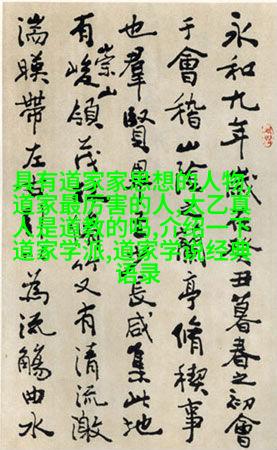 永和九年歲丑暮春之初會
于會稽山陰之蘭亭脩稧事
也羣賢畢長咸集此地
有崇山峻領茂竹又有清流激
湍暎帶左右為流觴曲水
具有道家家思想的人物,
道家最厉害的人,太乙真
人是道教的吗,介绍一下
道家学派,道家学说经典
语录